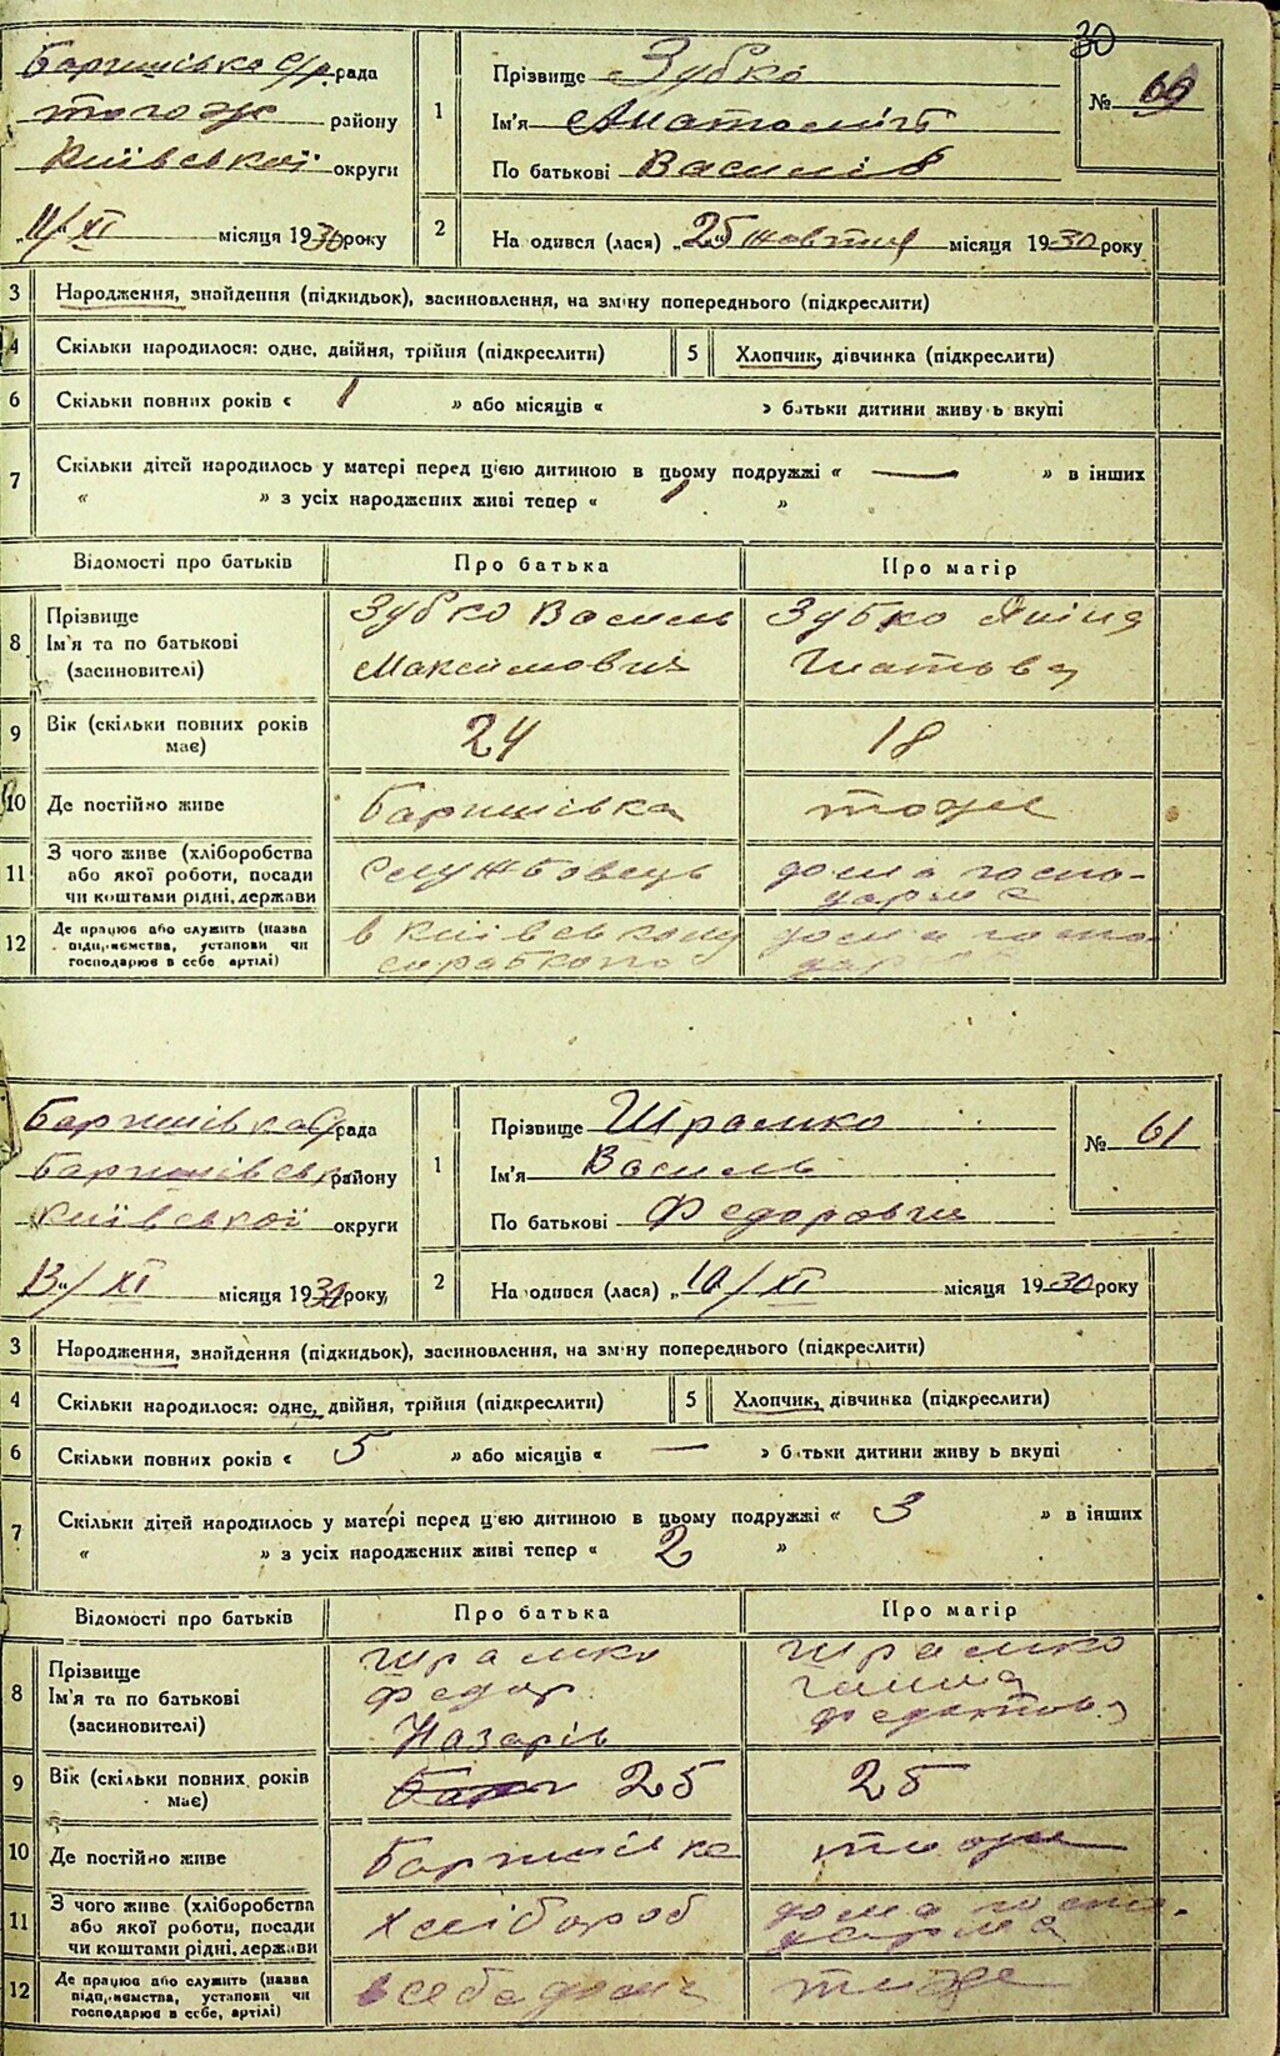 30
Баришівка с/р. рада
тогож району
Київської округи
„11/XI місяця 1930 року
1
Прізвище Зубко
Ім'я Анатолій
По батькові Василів
№ 60
2
На одився (лася) „25“ жовтня місяця 1930 року
3 Народження, знайдення (підкидьок), засиновлення, на зміну попереднього (підкреслити)
4 Скільки народилося: одне, двійня, трійня (підкреслити) 5 Хлопчик, дівчинка (підкреслити)
6 Скільки повних років « 1 » або місяців « » батьки дитини живу ь вкупі
7 Скільки дітей народилось у матері перед цією дитиною в цьому подружжі « — » в інших
« » з усіх народжених живі тепер « 1 »
Відомості про батьків Про батька Про матір
8 Прізвище
Ім'я та по батькові
(засиновителі)
Зубко Василь
Максимович
Зубко
9 Вік (скільки повних років
має) 24 18
10 Де постійно живе Баришівка тоже
11 З чого живе (хліборобства
або якої роботи, посади
чи коштами рідні, держави
службовець
дома госпо-
дарка
12 Де працює або служить (назва
підприємства, установи чи
господарює в себе артілі)
в Київському
дома госпо-
Баришівка с/рада
Баришівськ району
Київської округи
13“/XI місяця 1930 року,
1
Прізвище Шрамко
Ім'я Василь
По батькові Федорович
№ 61
2
На одився (лася) „10/XI місяця 1930 року
3 Народження, знайдення (підкидьок), засиновлення, на зміну попереднього (підкреслити)
4 Скільки народилося: одне, двійня, трійня (підкреслити) 5 Хлопчик, дівчинка (підкреслити)
6 Скільки повних років « 5 » або місяців « — » батьки дитини живу ь вкупі
7 Скільки дітей народилось у матері перед цією дитиною в цьому подружжі « 3 » в інших
« » з усіх народжених живі тепер « 2 »
Відомості про батьків Про батька Про матір
8 Прізвище
Ім'я та по батькові
(засиновителі)
Шрамко
Федор
Назарів
Шрамко
Ганна
9 Вік (скільки повних років
має) 25 25
10 Де постійно живе Баришівка тоже
11 З чого живе (хліборобства
або якої роботи, посади
чи коштами рідні, держави
хлібороб
дома госпо-
дарка
12 Де працює або служить (назва
підприємства, установи чи
господарює в себе, артілі)
в себе дома
тоже